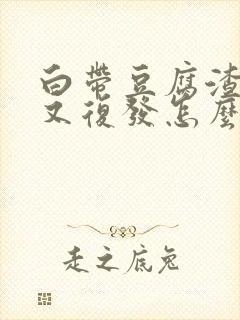 白帶豆腐渣
又復發怎麼
走之底兔